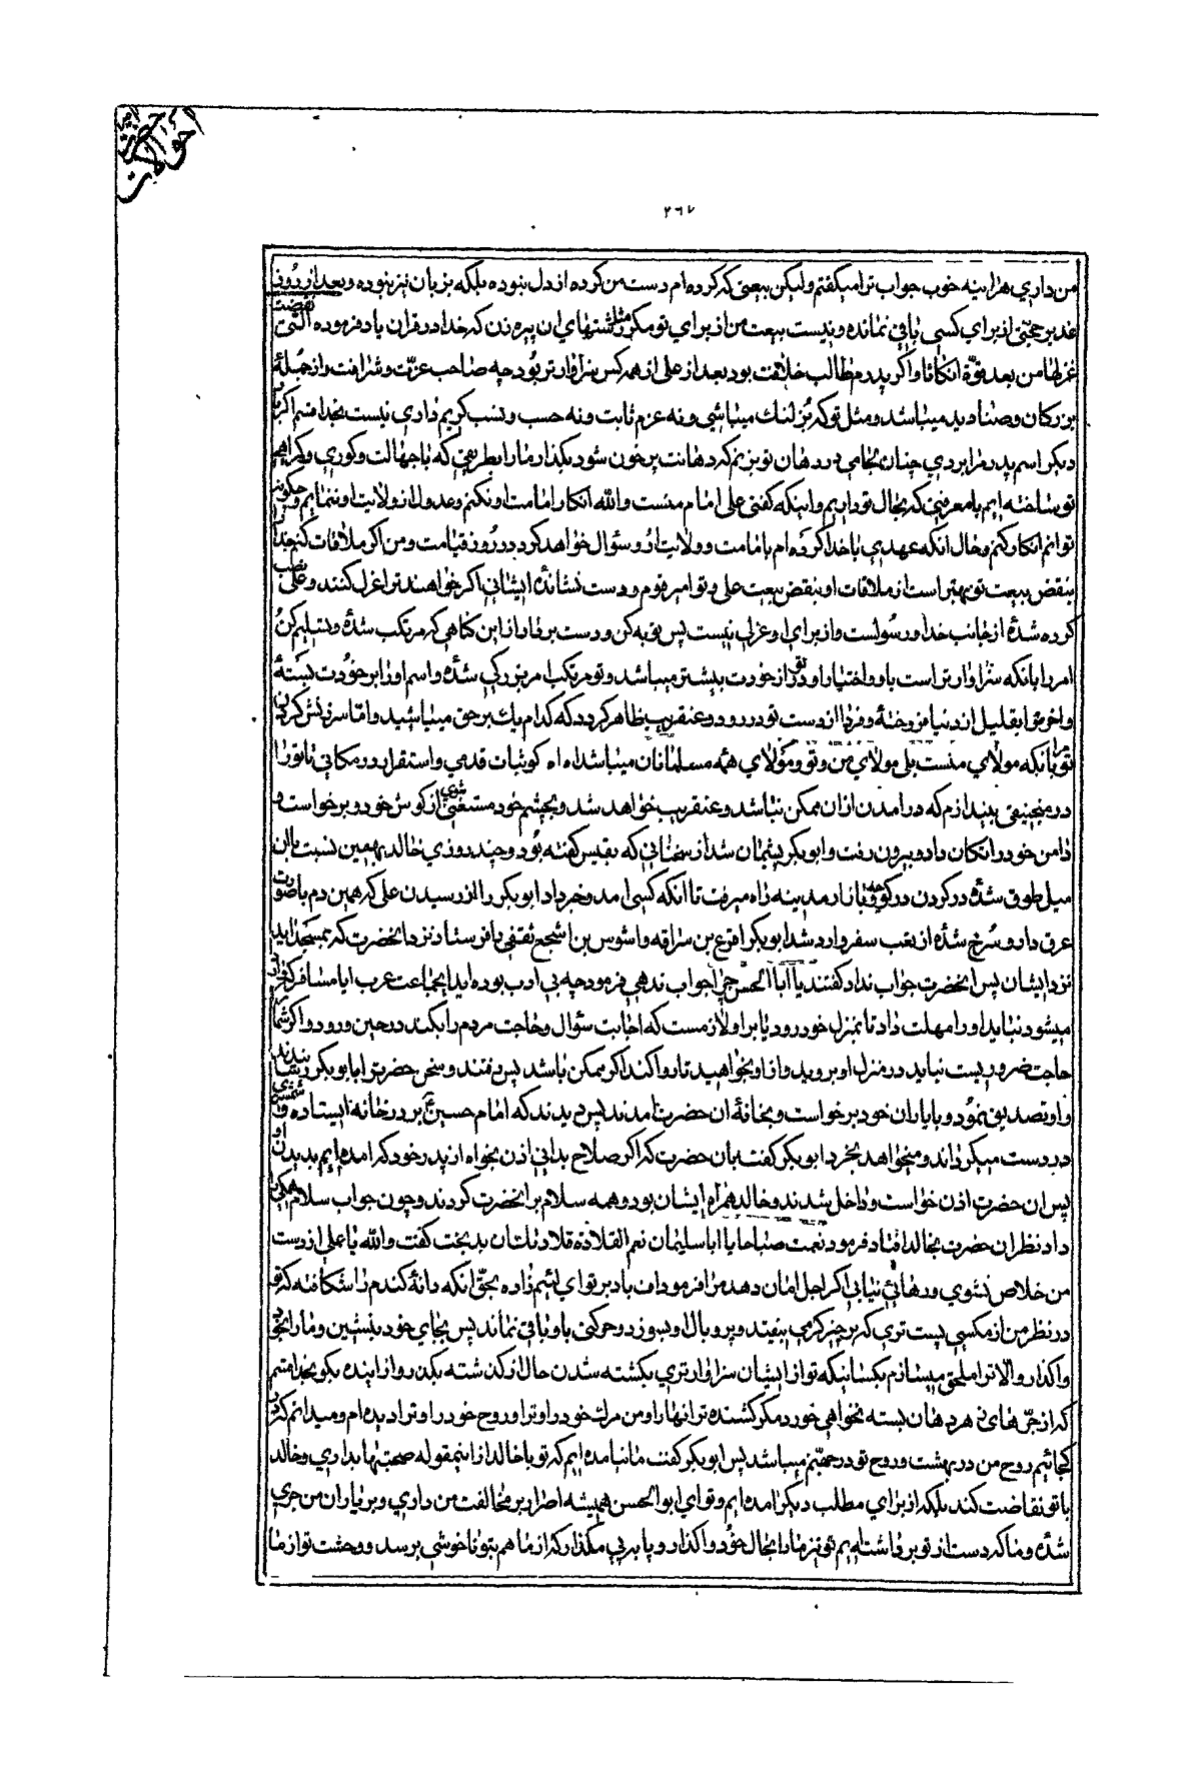 احوالات حضرت
٢٦٧
من داري هر اينه خوب جواب ترا ميكفتم وليكن بيعتي كه كرده ام دست من كرده از دل نبوده بلكه بزبان نيز نبوده وبعد از روز
غدير حجتي از براي كسي باقي نمانده ونيست بيعت من از براي تو مكر مثل رشتهاي ان پيره زن كه خدا در قران ياد فرموده التي نقضت
غزلها من بعد قوة انكاثا واكر پدرم طالب خلافت بود بعد از علي از همه كس سزاوارتر بود چه صاحب عزت وشرافت واز جملهٔ
بزركان وصناديد ميباشد ومثل تو كه بز لنك ميباشي ونه عزم ثابت ونه حسب ونسب كريم داري نيست بخدا قسم اكر بار
ديكر اسم پدر مرا بردي چنان لجامي در دهان تو بزنم كه دهانت پر خون شود بكذار ما را بطريقي كه با جهالت وكوري وكمراهي
تو ساخته ايم با معرفتي كه بحال تو داريم واينكه كفتي علي امام منست والله انكار امامت او نكنم وعدول از ولايت او ننمايم وچكونه
توانم انكار كنم وحال انكه عهدي با خدا كرده ام بامامت وولايت او وسؤال خواهد كرد در روز قيامت ومن اكر ملاقات كنم خدا را
بنقض بيعت تو بهتر است از ملاقات او بنقض بيعت علي وتو امير قوم ودست نشاندهٔ ايشاني اكر خواهند ترا عزل كنند وعلي نصب
كرده شدهٔ از جانب خدا ورسولست واز براي او عزلي نيست پس توبه كن ودست بردار از اين كناهي كه مرتكب شدهٔ وتسليم كن
امر را بانكه سزاوارتر است باو واختيار او بر تو از خودت بيشتر ميباشد وتو مرتكب امر بزركي شدهٔ واسم او را بر خودت بستهٔ
واخرت را بقليل از دنيا فروختهٔ وفردا از دست تو در رود وعنقريب ظاهر كردد كه كدام يك بر حق ميباشيد واما سرزنش كردن
تو مرا بانكه مولاي منست بلي مولاي من وتو ومولاي همه مسلمانان ميباشد اه اه كو ثبات قدمي واستقرار در مكاني تا تو را
در منجنيقي بيندازم كه در امدن از ان ممكن نباشد وعنقريب خواهد شد وبچشم خود مستغني شوي از كوش خود وبرخواست و
دامن خود را تكان داد وبيرون رفت وابوبكر پشيمان شد از سخناني كه بقيس كفته بود وچند روزي خالد بهمين نسبت با ان
ميل طوق شدهٔ در كردن در كوچه وبازار مدينه راه ميرفت تا انكه كسي امد وخبر داد ابوبكر را از رسيدن علي كه همين دم با صورت
عرق دار وسرخ شده از تعب سفر وارد شد ابوبكر اقرع بن سراقه واشوس بن اشجع ثقفي را فرستاد نزد انحضرت كه بمسجد ايد
نزد ايشان پس انحضرت جواب نداد كفتند يا ابا الحسن چرا جواب ندهي فرمود چه بي ادب بوده ايد ايجماعت عرب ايا مسافر كه وارد
ميشود نبايد او را مهلت داد تا بمنزل خود رود يا بر او لازمست كه اجابت سؤال وحاجت مردم را بكند در حين ورود واكر شما را
حاجت ضروريست نبايد در منزل او برويد واز او بخواهيد تا روا كند اكر ممكن باشد پس رفتند وسخن حضرت را بابوبكر رسانيدند
واو تصديق نمود وبا ياران خود برخواست وبخانهٔ ان حضرت امدند پس ديدند كه امام حسين ع بر در خانه ايستاده وشمشيري
در دست ميكرداند وميخواهد بخرد ابوبكر كفت بان حضرت كه اكر صلاح بداني اذن بخواه از پدر خود كه امده ايم بديدن او
پس ان حضرت اذن خواست وداخل شدند وخالد همراه ايشان بود وهمه سلام بر انحضرت كردند وچون جواب سلام همكي را
داد نظر ان حضرت بخالد افتاد فرمود نعمت صباحا يا ابا سليمان نعم القلادة قلادتك ان بدبخت كفت والله يا علي از دست
من خلاص نشوي ورهائي نيابي اكر اجل امان دهد مرا فرمود اف باد بر تو اي لئيم زاده بحق انكه دانهٔ كندم را شكافته كه تو
در نظر من از مكسي پست تري كه بر چيز كرمي بيفتد وپر وبال او بسوزد وحركتي باو باقي نماند پس بجاي خود بنشين وما را بخود
واكذار والا ترا ملحق ميسازم بكسانيكه تو از ايشان سزاوارتري بكشته شدن حال از كذشته بكذر واز اينده بكو بخدا قسم
كه از جرعهاي زهر دهان بسته نخواهي خورد مكر كشنده تر انها را ومن مرك خود را وترا وروح خود را وترا ديده ام وميدانم كه در
كجائيم روح من در بهشت وروح تو در جهنم ميباشد پس ابوبكر كفت ما نيامده ايم كه تو با خالد از اينمقوله صحبتها بداري وخالد
با تو نقاضت كند بلكه از براي مطلب ديكر امده ايم وتو اي ابو الحسن هميشه اصرار بر مخالفت من داري وبر ياران من جري
شدهٔ وما كه دست از تو برداشته ايم تو نيز ما را بحال خود واكذار وپا بر پي مكذار كه از ما هم بتو ناخوشي برسد ووحشت تو از ما